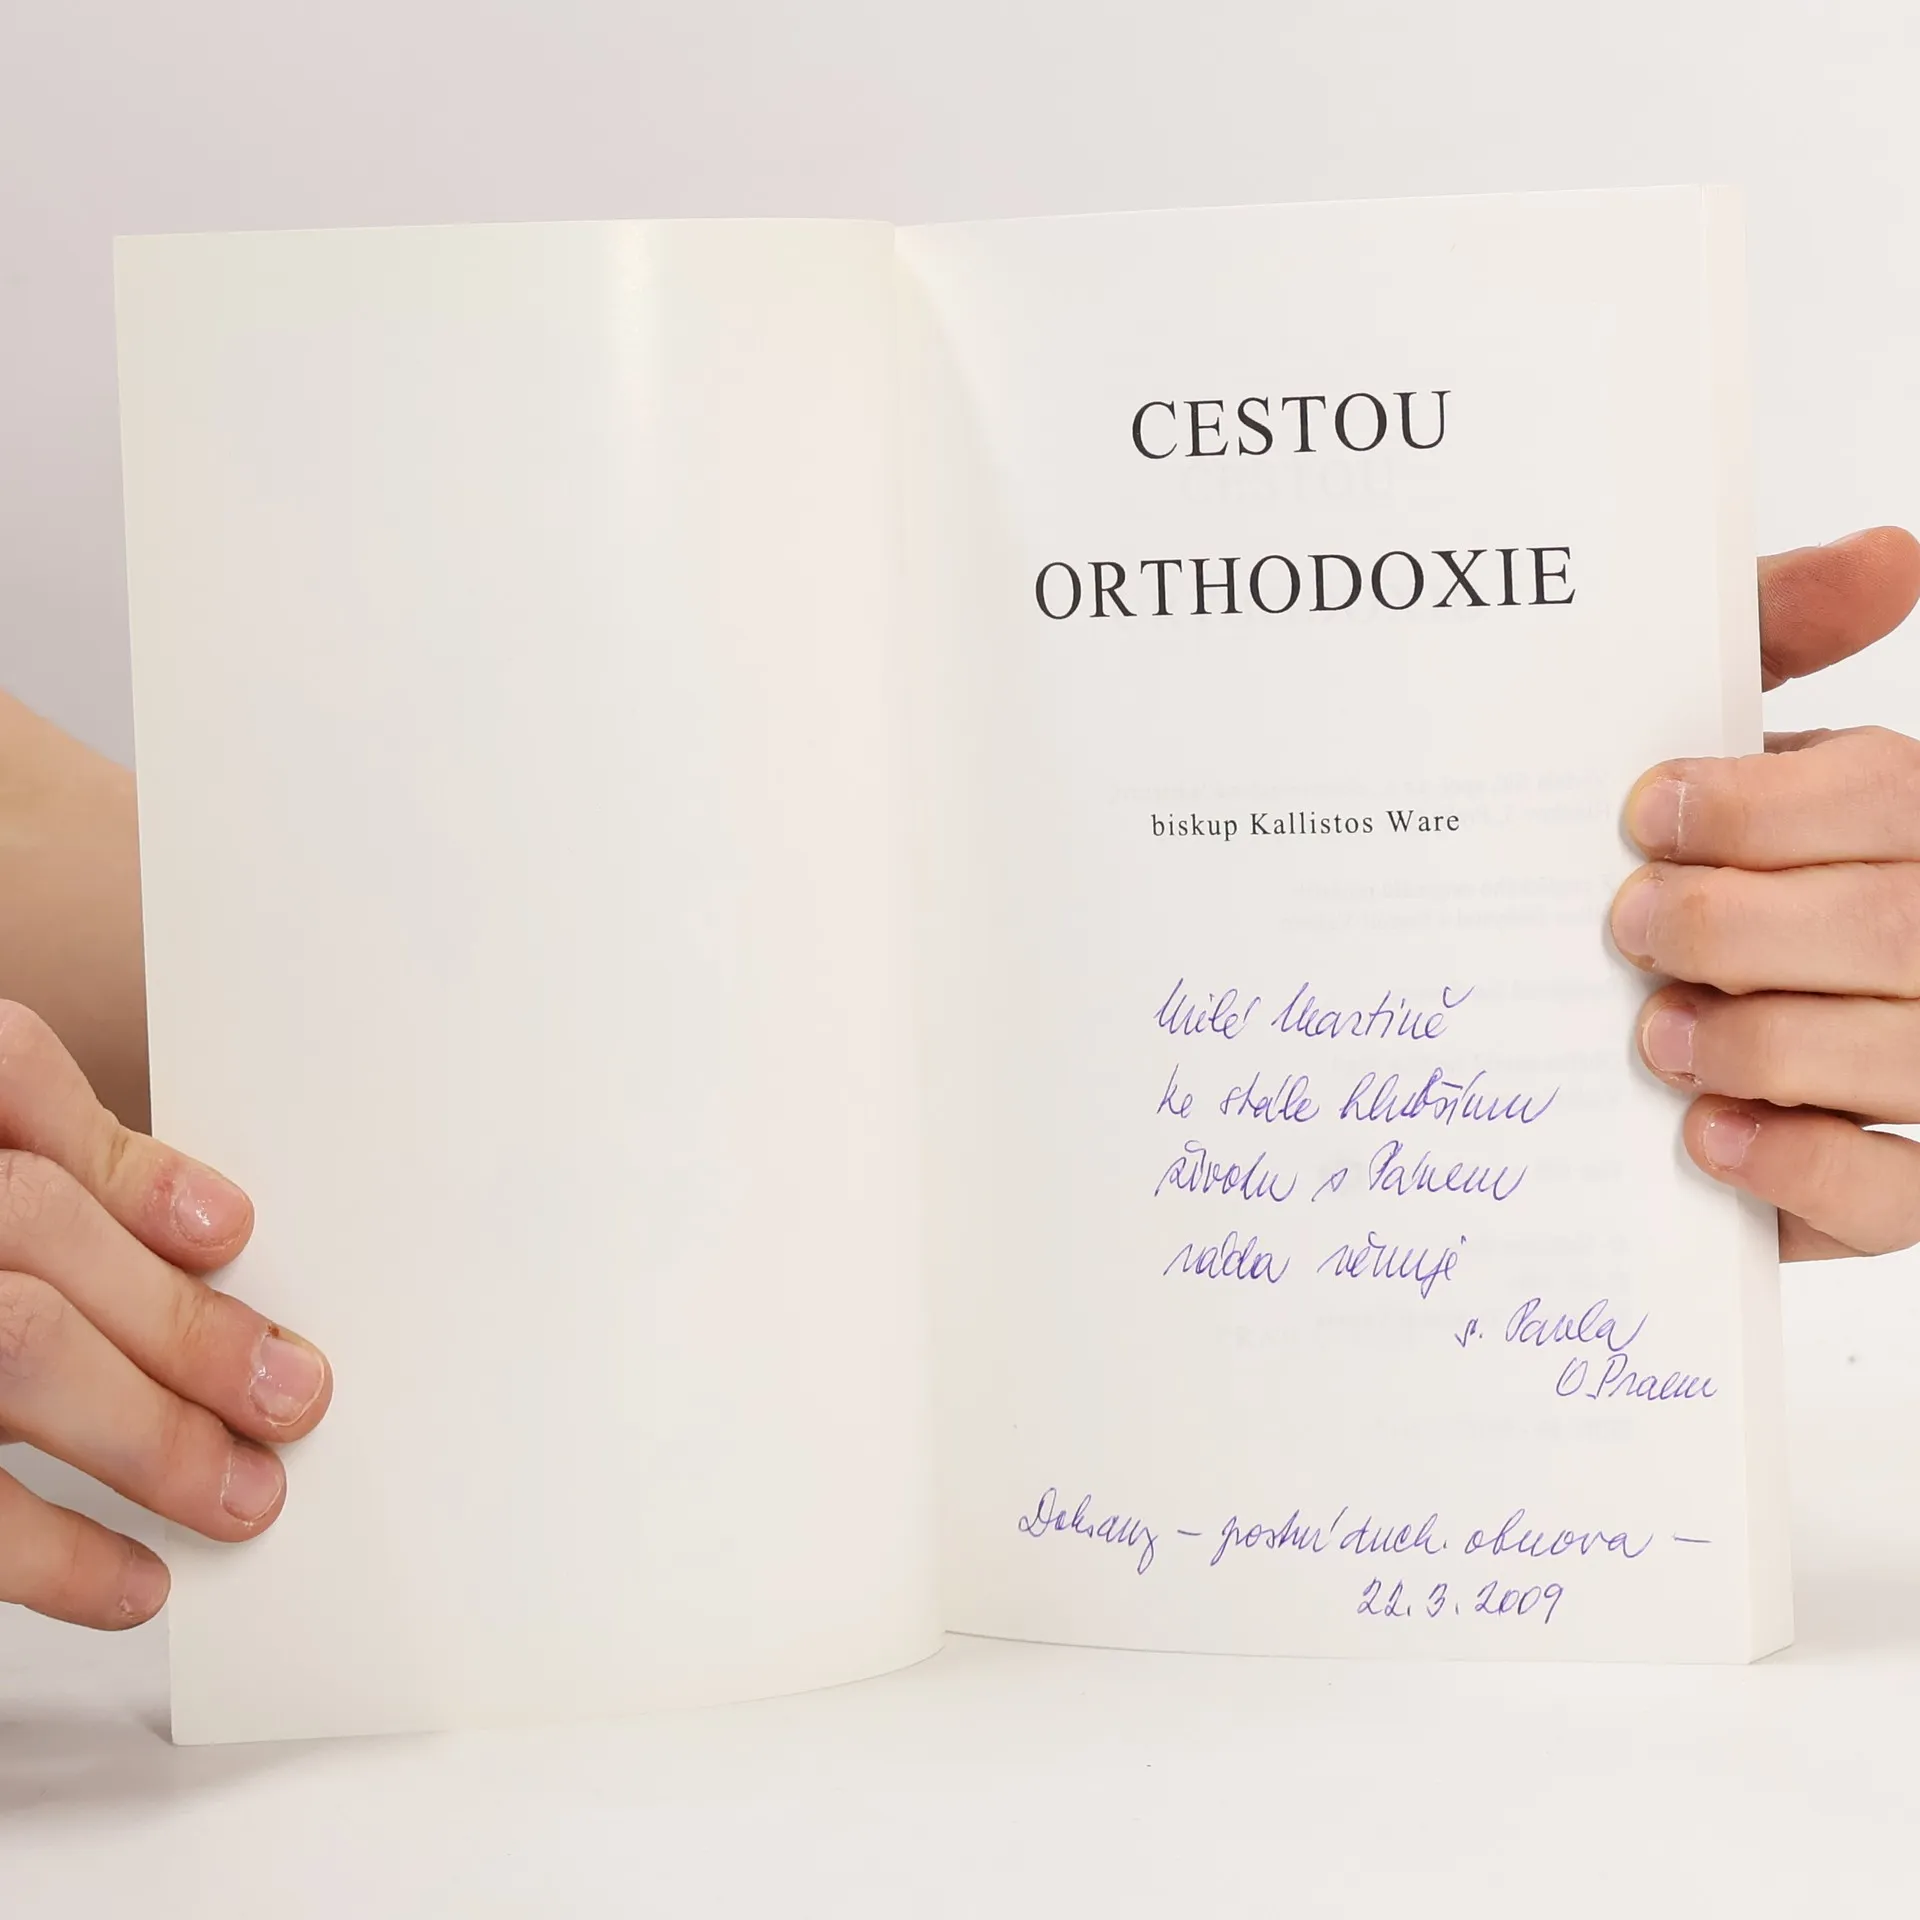 CESTOU
ORTHODOXIE
biskup Kallistos Ware
Milé Martině
ke stále hlubšímu
životu s Pánem
ráda věnuje
s. Pavla
O.Praem
Doksany – postní duch. obnova –
22.3.2009